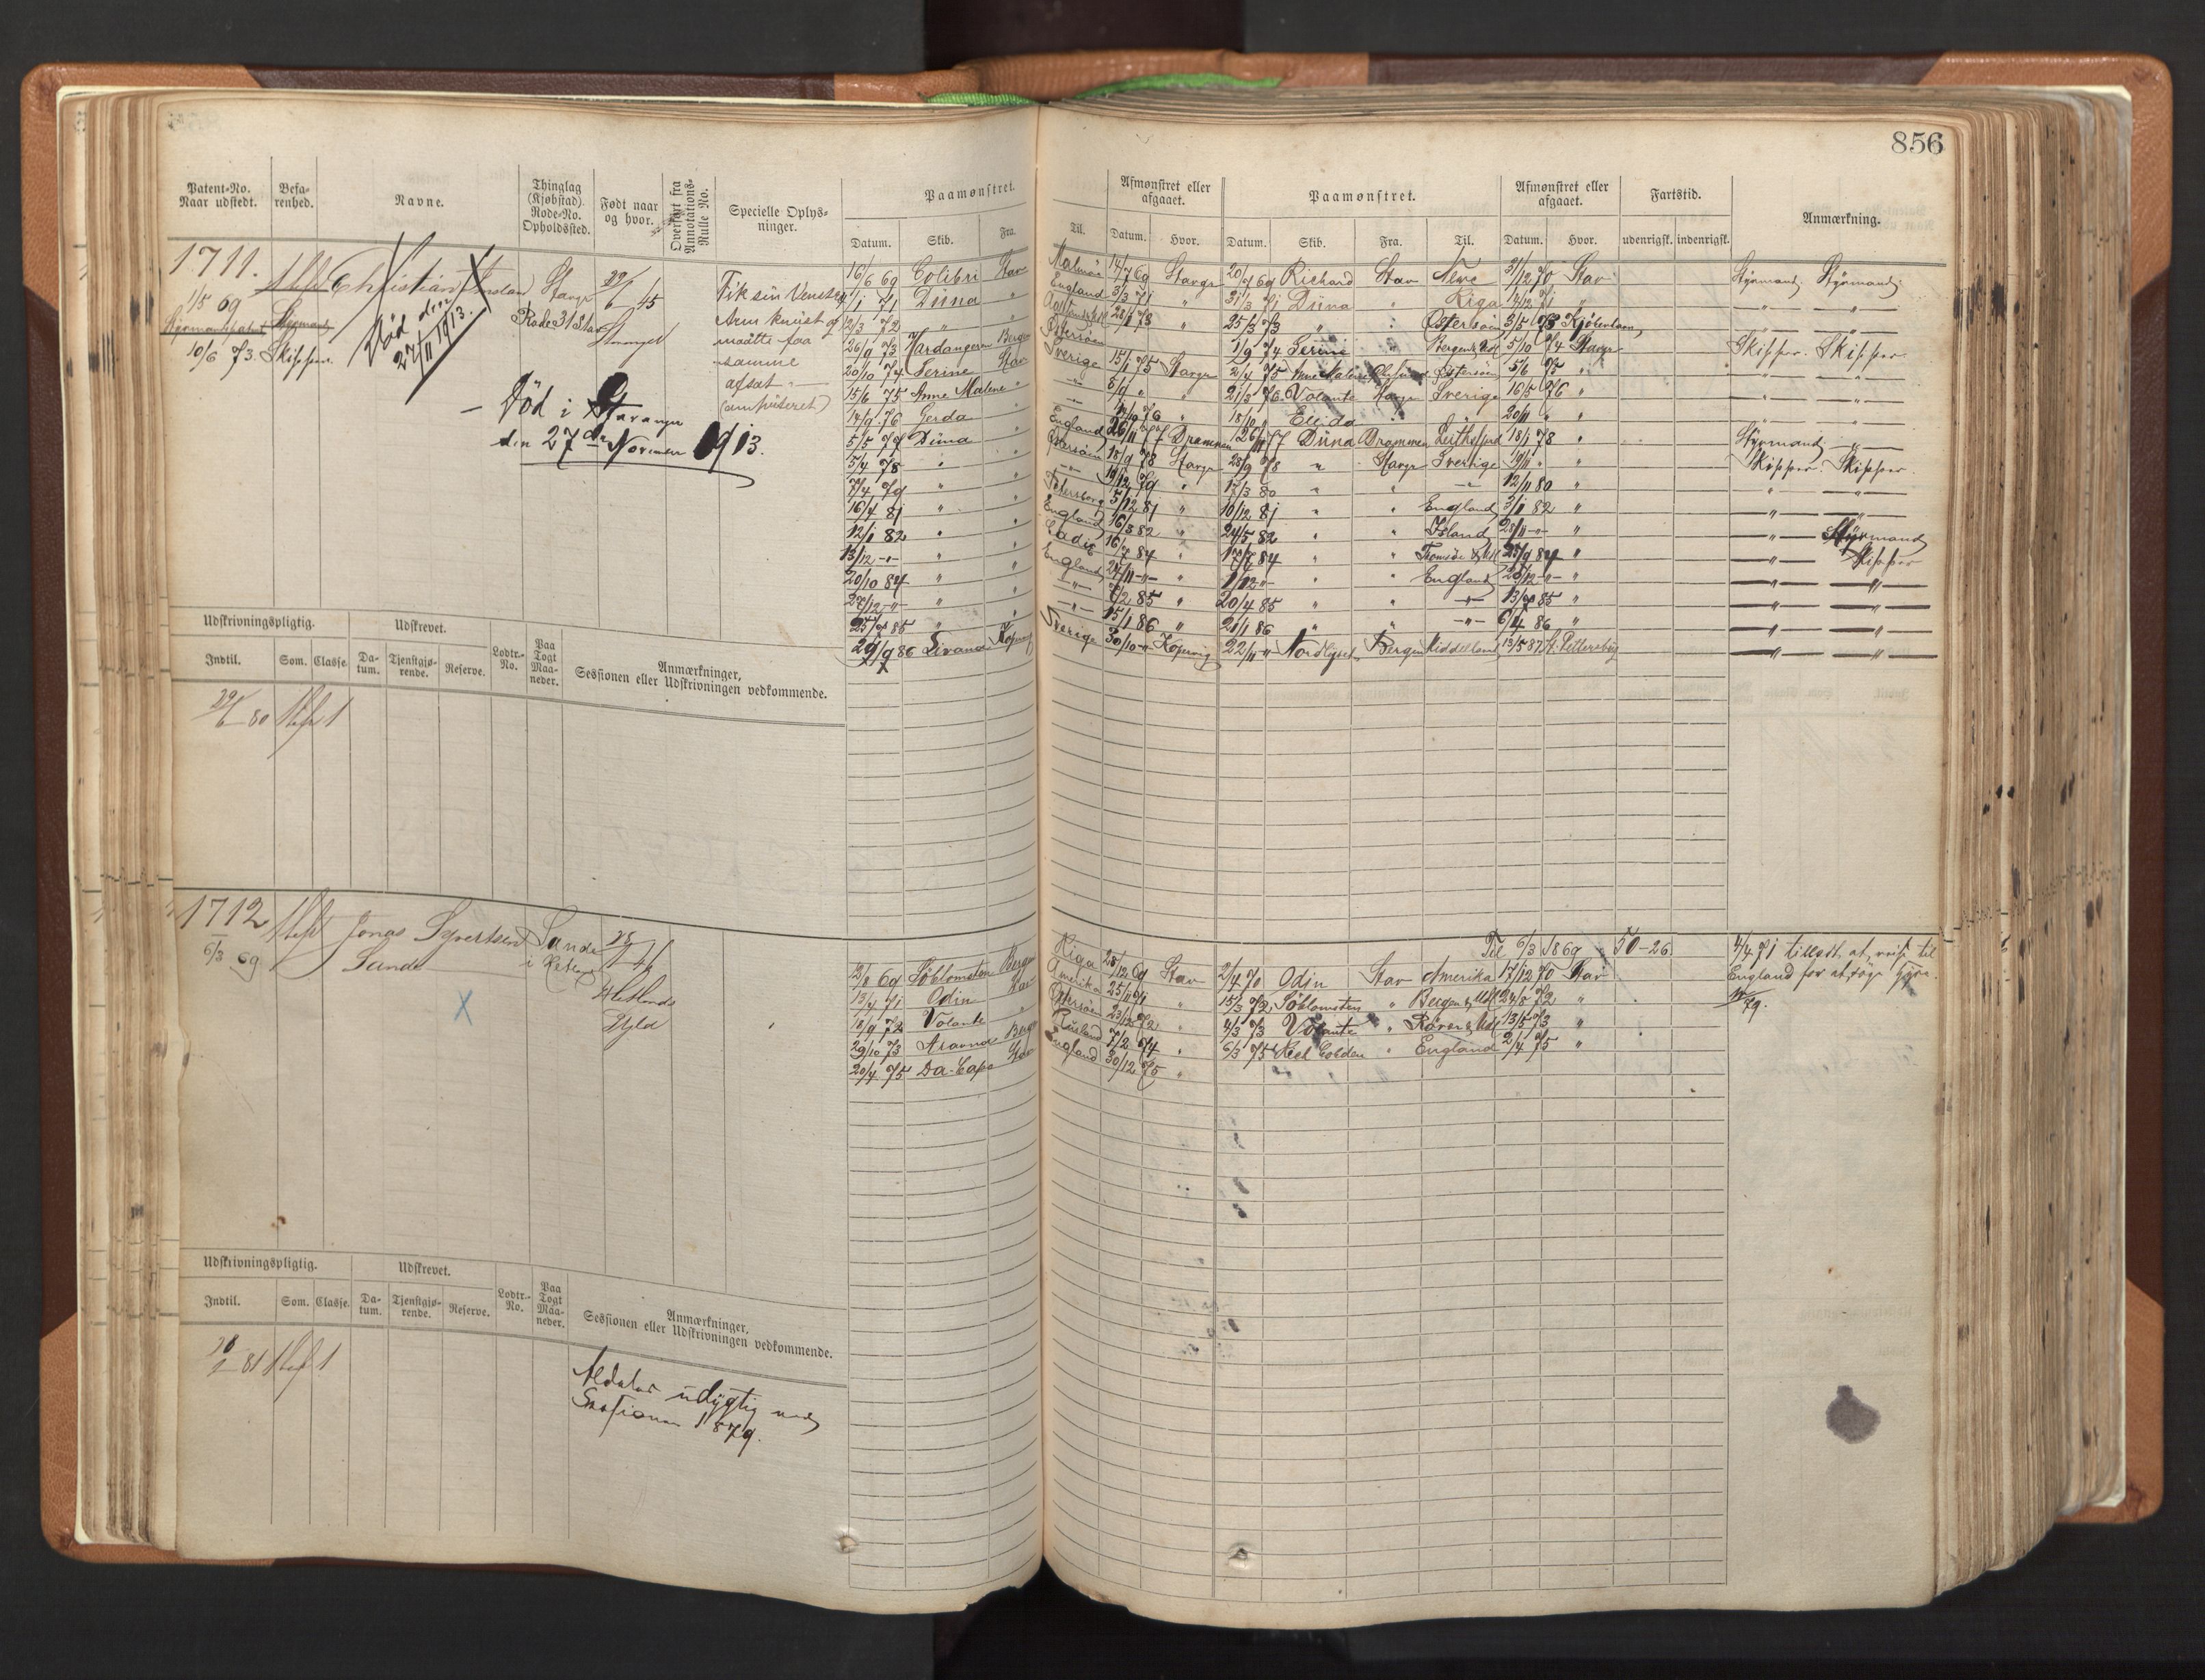 856
Patent-No. Naar udstedt.
Befarenhed.
Navne.
Thinglag (Kjøbstad). Rode-No. Opholdssted.
Født naar og hvor.
Overført fra Annotations-Rulle No.
Specielle Oplysninger.
Paamønstret.
Datum. Skib. Fra. Til.
Afmønstret eller afgaaet.
Datum. Hvor.
Paamønstret.
Datum. Skib. Fra. Til.
Afmønstret eller afgaaet.
Datum. Hvor.
Fartstid.
udenrigsk. indenrigsk.
Anmærkning.
1711.
1/5 69
10/6 73. Skipper
Christian
Død den
27/11 1913.
Stavgr
Rode 31 Stav
29/6 45
Fik sin Venstre
Arm knust og
maatte faa
samme
afsat
(amputeret)
— Død i Stavanger
den 27de November 1913.
16/6 69 Colibri Stav Malmø 14/7 69 Stavgr 20/7 69 Richard Stav Newc 31/12 70 Stav Styrmand Styrmand
1/1 71 Düna " England 3/3 71 " 31/3 71 Düna " Riga 14/12 71 "
12/3 72 " " 28/1 73 " 25/3 73 " " Østersøen 3/5 73 Kjøbenhavn
26/9 73 Hardangeren Bergen Østersøen 1/9 74 Serine " Bergen & Udl 5/10 74 Stavgr Skipper Skipper
20/10 74 Serine Stav Sverige 15/1 75 Stavgr 2/4 75 Anne Malene Østersøen 5/6 75 "
15/6 75 Anne Malene " 8/9 " 21/3 76 Volante Stavgr Sverige 16/5 76 "
14/9 76 Gerda " 14/10 76 " 18/10 " Ellida " 20/11 "
5/5 77 Düna " England 26/11 77 Drammen 26/11 77 Düna Drammen Leithsfjord 18/1 78 " Styrmand
5/4 78 " " Østersøen 18/9 78 Stavgr 28/9 78 " Stavgr Sverige 19/11 " " Skipper Skipper
7/4 79 " " 19/12 79 " 17/3 80 " " 12/11 80 "
16/4 81 " " Petersborg 5/12 81 " 10/12 81 " " England 3/1 82 "
12/1 82 " " England 16/3 82 " 24/5 82 " " Island 28/11 " Styrmand
13/12 " " Cadiz 16/7 84 " 17/7 84 " " Tromsøe & Udl 25/9 84 " Skipper
20/10 84 " " England 24/11 " 1/12 " " " England 23/12 " "
27/12 " " 7/2 85 " 20/4 85 " " 13/7 85 "
25/7 85 " " 15/1 86 " 21/1 86 " " 6/4 86 "
29/9 86 Livana Kopervig Sverige 30/10 " Kopervig 22/11 " Nordlyset Bergen Middelhavet 13/5 87 St. Pettersborg
Udskrivningspligtig. Udskrevet. Lodtr.-No. Paa Togt Maaneder. Anmærkninger,
Indtil. Som. Classe. Datum. Tjenstgjørende. Reserve. Sessionen eller Udskrivningen vedkommende.
29/6 80 1
1712
6/3 69
Jonas Syvertsen
Sande
Sande
i Hetland
Hetlands
X
12/8 69 Søblomsten Bergen Riga 28/12 69 Stav 2/4 70 Odin Stav Amerika 17/12 70 Stav
Til 6/3 1869 50-26
13/4 71 Odin Stav Amerika 25/11 71 " 15/3 72 Søblomsten " Bergen & Udl 24/8 72 "
18/9 72 Volante " Østersøen 23/12 72 " 4/3 73 Volante " 13/5 73 "
29/10 73 Bergen Rusland 7/2 74 " 6/3 75 Rich Cobden " England 2/4 75 "
20/4 75 Da Capo Stav England 30/12 75 "
4/4 71 tilladt at reise til
England for at søge Hyre.
Udskrivningspligtig. Udskrevet. Lodtr.-No. Paa Togt Maaneder. Anmærkninger,
Indtil. Som. Classe. Datum. Tjenstgjørende. Reserve. Sessionen eller Udskrivningen vedkommende.
81 1
udygtig ved
Sessionen 1879.